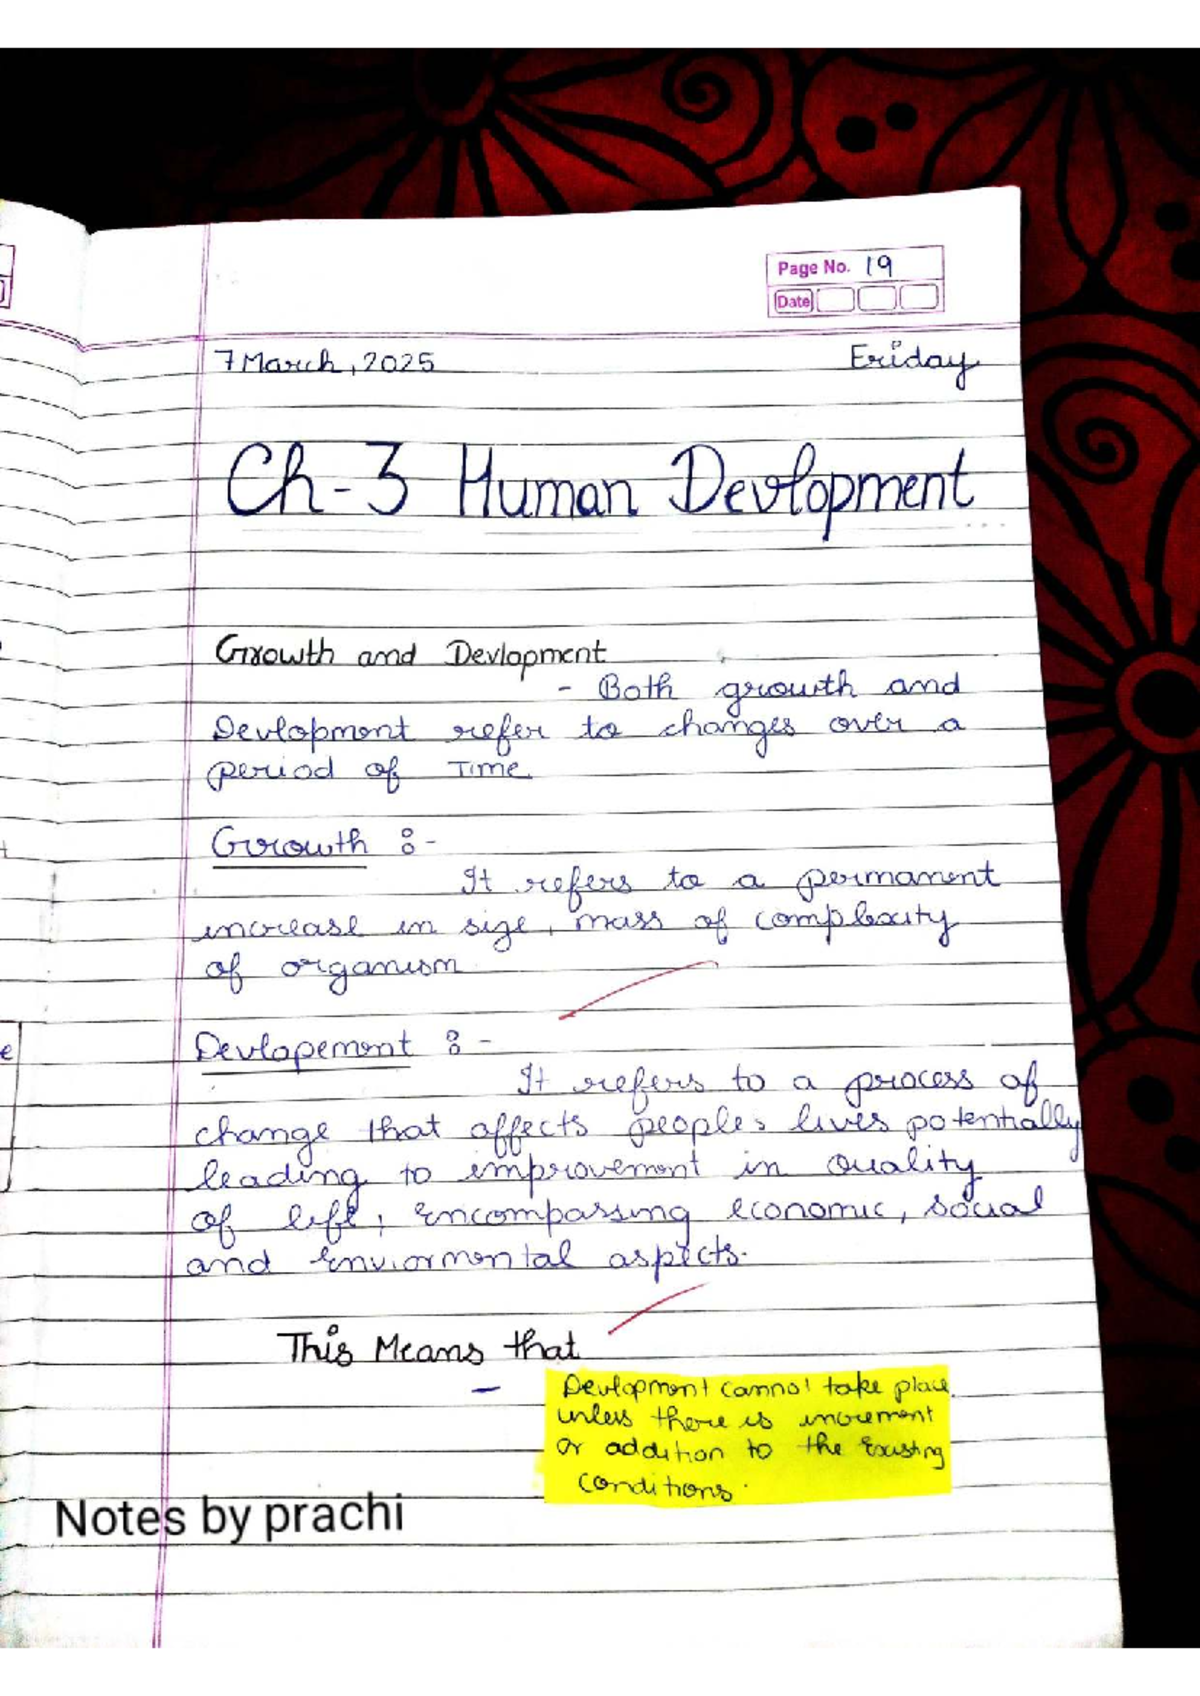 Page No. 19
Date
7 March, 2025 Friday
Ch-3 Human Devlopment
Growth and Devlopment
- Both growth and
Devlopment refer to changes over a
period of Time
Growth :-
It refers to a permanent
increase in size, mass of complexity
of organism
Devlopement :-
It refers to a process of
change that affects people's lives potentially
leading to improvement in quality
of life, encompassing economic, social
and enviormental aspects.
This Means that
- Devlopment cannot take place
unless there is increment
or addition to the existing
conditions.
Notes by prachi